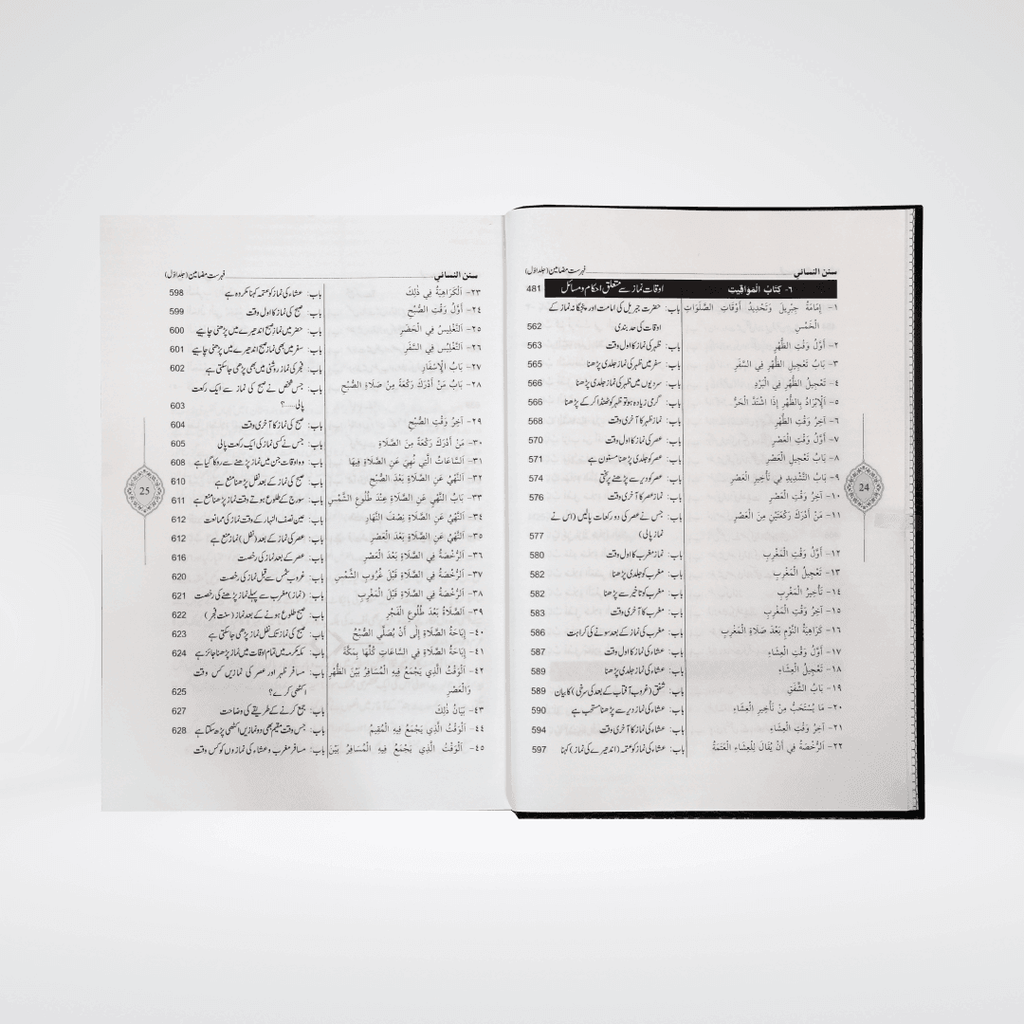 سنن النسائي فہرست مضامین (جلد اوّل)
٦- كِتَابُ المَوَاقِيتِ اوقات نماز سے متعلق احکام و مسائل 481
١- إِمَامَةُ جِبْرِيلَ وَتَحْدِيدُ أَوْقَاتِ الصَّلَوَاتِ باب: حضرت جبریل کی امامت اور پنجگانہ نماز کے
الْخَمْسِ اوقات کی حد بندی 562
٢- أَوَّلُ وَقْتِ الظُّهْرِ باب: ظہر کی نماز کا اول وقت 563
٣- بَابُ تَعْجِيلِ الظُّهْرِ فِي السَّفَرِ باب: سفر میں ظہر کی نماز جلدی پڑھنا 565
٤- تَعْجِيلُ الظُّهْرِ فِي الْبَرْدِ باب: سردیوں میں ظہر کی نماز جلدی پڑھنا 566
٥- اَلْإِبْرَادُ بِالظُّهْرِ إِذَا اشْتَدَّ الْحَرُّ باب: گرمی زیادہ ہو تو ظہر کو ٹھنڈا کر کے پڑھنا 566
٦- آخِرُ وَقْتِ الظُّهْرِ باب: نماز ظہر کا آخری وقت 568
٧- أَوَّلُ وَقْتِ الْعَصْرِ باب: عصر کی نماز کا اول وقت 570
٨- بَابُ تَعْجِيلِ الْعَصْرِ باب: عصر کو جلدی پڑھنا مسنون ہے 571
٩- بَابُ التَّشْدِيدِ فِي تَأْخِيرِ الْعَصْرِ باب: عصر کو دیر سے پڑھنے پر سختی 574
١٠- آخِرُ وَقْتِ الْعَصْرِ باب: نماز عصر کا آخری وقت 576
١١- مَنْ أَدْرَكَ رَكْعَتَيْنِ مِنَ الْعَصْرِ باب: جس نے عصر کی دو رکعات پالیں (اس نے
نماز پالی) 577
١٢- أَوَّلُ وَقْتِ الْمَغْرِبِ باب: نماز مغرب کا اول وقت 580
١٣- تَعْجِيلُ الْمَغْرِبِ باب: مغرب کو جلدی پڑھنا 582
١٤- تَأْخِيرُ الْمَغْرِبِ باب: مغرب کو تاخیر سے پڑھنا 582
١٥- آخِرُ وَقْتِ الْمَغْرِبِ باب: مغرب کا آخری وقت 583
١٦- كَرَاهِيَةُ النَّوْمِ بَعْدَ صَلَاةِ الْمَغْرِبِ باب: مغرب کی نماز کے بعد سونے کی کراہت 586
١٧- أَوَّلُ وَقْتِ الْعِشَاءِ باب: عشاء کی نماز کا اول وقت 587
١٨- تَعْجِيلُ الْعِشَاءِ باب: عشاء کی نماز جلدی پڑھنا 589
١٩- بَابُ الشَّفَقِ باب: شفق (غروب آفتاب کے بعد کی سرخی) کا بیان 589
٢٠- مَا يُسْتَحَبُّ مِنْ تَأْخِيرِ الْعِشَاءِ باب: عشاء کی نماز دیر سے پڑھنا مستحب ہے 590
٢١- آخِرُ وَقْتِ الْعِشَاءِ باب: عشاء کی نماز کا آخری وقت 594
٢٢- اَلرُّخْصَةُ فِي أَنْ يُقَالَ لِلْعِشَاءِ الْعَتَمَةُ باب: عشاء کی نماز کو عتمہ (اندھیرے کی نماز) کہنا 597
24
سنن النسائي فہرست مضامین (جلد اوّل)
٢٣- اَلْكَرَاهِيَةُ فِي ذٰلِكَ باب: عشاء کی نماز کو عتمہ کہنا مکروہ ہے 598
٢٤- أَوَّلُ وَقْتِ الصُّبْحِ باب: صبح کی نماز کا اول وقت 599
٢٥- اَلتَّغْلِيسُ فِي الْحَضَرِ باب: حضر میں نماز صبح اندھیرے میں پڑھنی چاہیے 600
٢٦- اَلتَّغْلِيسُ فِي السَّفَرِ باب: سفر میں بھی نماز صبح اندھیرے میں پڑھنی چاہیے 601
٢٧- بَابُ الْإِسْفَارِ باب: فجر کی نماز روشنی میں بھی پڑھی جا سکتی ہے 602
٢٨- بَابُ مَنْ أَدْرَكَ رَكْعَةً مِنْ صَلَاةِ الصُّبْحِ باب: جس شخص نے صبح کی نماز سے ایک رکعت
پالی.....؟ 603
٢٩- آخِرُ وَقْتِ الصُّبْحِ باب: صبح کا آخری وقت 604
٣٠- مَنْ أَدْرَكَ رَكْعَةً مِنَ الصَّلَاةِ باب: جس نے کسی نماز کی ایک رکعت پالی 605
٣١- اَلسَّاعَاتُ الَّتِي نُهِيَ عَنِ الصَّلَاةِ فِيهَا باب: وہ اوقات جن میں نماز پڑھنے سے روکا گیا ہے 608
٣٢- اَلنَّهْيُ عَنِ الصَّلَاةِ بَعْدَ الصُّبْحِ باب: صبح کی نماز کے بعد نفل پڑھنا منع ہے 610
٣٣- بَابُ النَّهْيِ عَنِ الصَّلَاةِ عِنْدَ طُلُوعِ الشَّمْسِ باب: سورج کے طلوع ہوتے وقت نماز پڑھنا منع ہے 611
٣٤- اَلنَّهْيُ عَنِ الصَّلَاةِ نِصْفَ النَّهَارِ باب: عین نصف النہار کے وقت نماز کی ممانعت 612
٣٥- اَلنَّهْيُ عَنِ الصَّلَاةِ بَعْدَ الْعَصْرِ باب: عصر کی نماز کے بعد (نفل) نماز منع ہے 612
٣٦- اَلرُّخْصَةُ فِي الصَّلَاةِ بَعْدَ الْعَصْرِ باب: عصر کے بعد نماز کی رخصت 616
٣٧- اَلرُّخْصَةُ فِي الصَّلَاةِ قَبْلَ غُرُوبِ الشَّمْسِ باب: غروب شمس سے قبل نماز کی رخصت 620
٣٨- اَلرُّخْصَةُ فِي الصَّلَاةِ قَبْلَ الْمَغْرِبِ باب: (نماز) مغرب سے پہلے نماز پڑھنے کی رخصت 621
٣٩- اَلصَّلَاةُ بَعْدَ طُلُوعِ الْفَجْرِ باب: صبح طلوع ہونے کے بعد نماز (سنت فجر) 622
٤٠- إِبَاحَةُ الصَّلَاةِ إِلَى أَنْ يُصَلَّي الصُّبْحُ باب: صبح کی نماز تک نفل نماز پڑھی جا سکتی ہے 623
٤١- إِبَاحَةُ الصَّلَاةِ فِي السَّاعَاتِ كُلِّهَا بِمَكَّةَ باب: مکہ مکرمہ میں تمام اوقات میں نماز پڑھنا جائز ہے 624
٤٢- اَلْوَقْتُ الَّذِي يَجْمَعُ فِيهِ الْمُسَافِرُ بَيْنَ الظُّهْرِ باب: مسافر ظہر اور عصر کی نمازیں کس وقت
وَالْعَصْرِ اکٹھی کرے؟ 625
٤٣- بَيَانُ ذٰلِكَ باب: جمع کرنے کے طریقے کی وضاحت 627
٤٤- اَلْوَقْتُ الَّذِي يَجْمَعُ فِيهِ الْمُقِيمُ باب: جس وقت مقیم بھی دو نمازیں اکٹھی پڑھ سکتا ہے 628
٤٥- اَلْوَقْتُ الَّذِي يَجْمَعُ فِيهِ الْمُسَافِرُ بَيْنَ باب: مسافر مغرب و عشاء کی نمازوں کو کس وقت
25